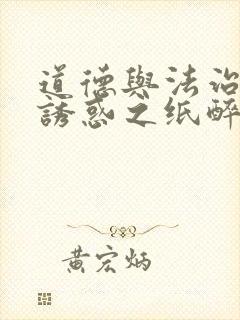 道德與法治
誘惑之纸醉
黄宏炳